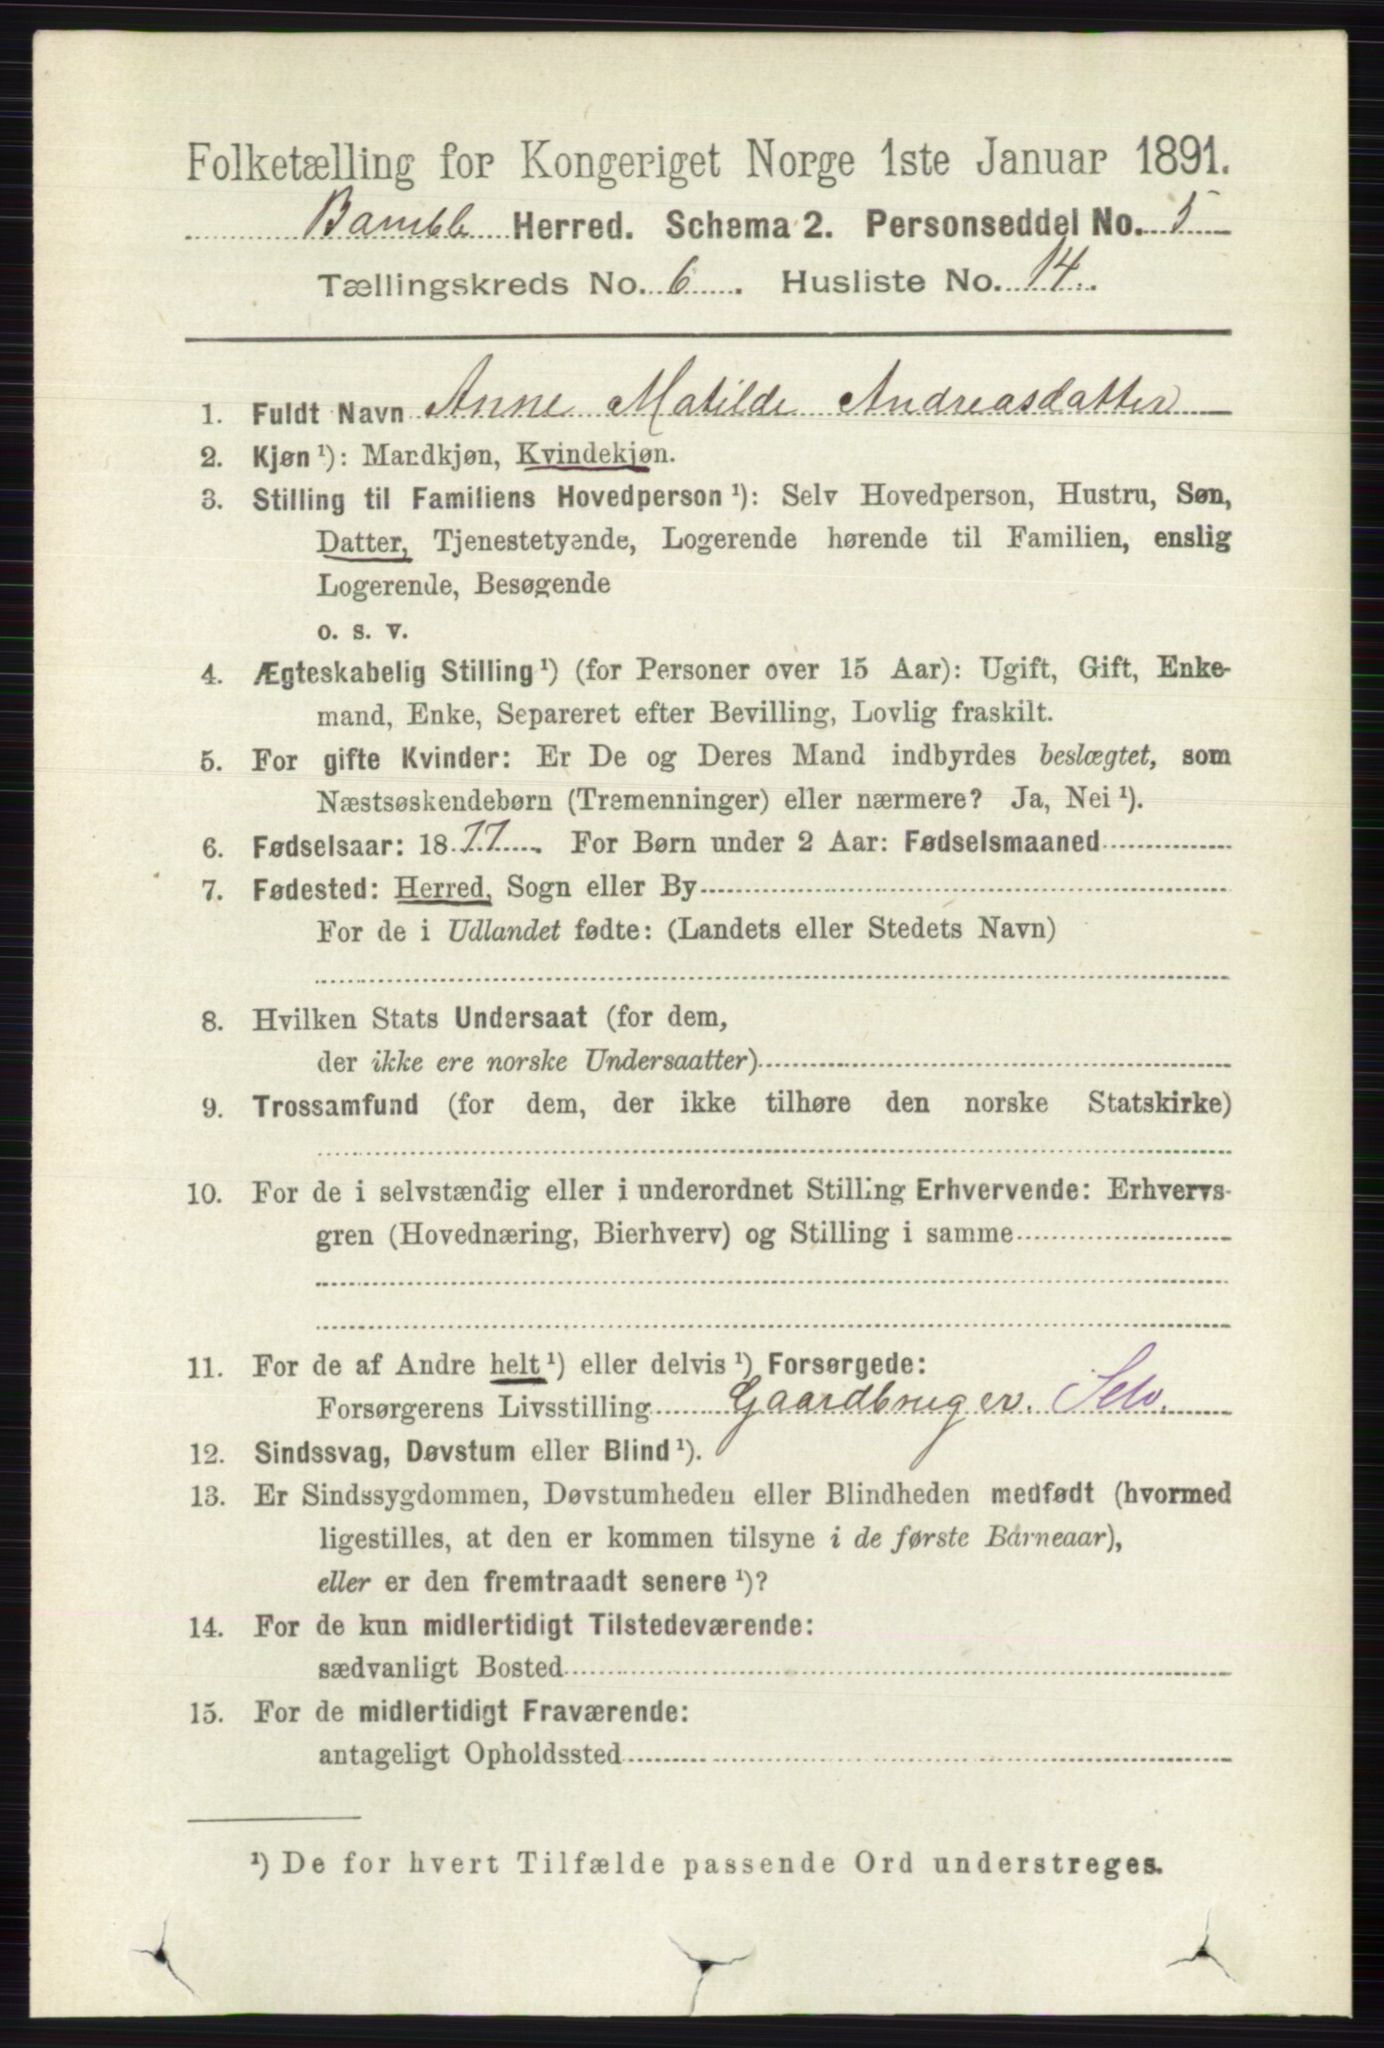 Folketælling for Kongeriget Norge 1ste Januar 1891.
Bamble Herred. Schema 2. Personseddel No. 5
Tællingskreds No. 6. Husliste No. 14.
1. Fuldt Navn Anne Matilde Andreasdatter
2. Kjøn ¹): Mandkjøn, Kvindekjøn.
3. Stilling til Familiens Hovedperson ¹): Selv Hovedperson, Hustru, Søn,
Datter, Tjenestetyende, Logerende hørende til Familien, enslig
Logerende, Besøgende
o. s. v.
4. Ægteskabelig Stilling ¹) (for Personer over 15 Aar): Ugift, Gift, Enke-
mand, Enke, Separeret efter Bevilling, Lovlig fraskilt.
5. For gifte Kvinder: Er De og Deres Mand indbyrdes beslægtet, som
Næstsøskendebørn (Tremenninger) eller nærmere? Ja, Nei ¹).
6. Fødselsaar: 1877. For Børn under 2 Aar: Fødselsmaaned
7. Fødested: Herred, Sogn eller By
For de i Udlandet fødte: (Landets eller Stedets Navn)
8. Hvilken Stats Undersaat (for dem,
der ikke ere norske Undersaatter)
9. Trossamfund (for dem, der ikke tilhøre den norske Statskirke)
10. For de i selvstændig eller i underordnet Stilling Erhvervende: Erhvervs-
gren (Hovednæring, Bierhverv) og Stilling i samme
11. For de af Andre helt ¹) eller delvis ¹) Forsørgede:
Forsørgerens Livsstilling Gaardbruger. Selv.
12. Sindssvag, Døvstum eller Blind ¹).
13. Er Sindssygdommen, Døvstumheden eller Blindheden medfødt (hvormed
ligestilles, at den er kommen tilsyne i de første Barneaar),
eller er den fremtraadt senere ¹)?
14. For de kun midlertidigt Tilstedeværende:
sædvanligt Bosted
15. For de midlertidigt Fraværende:
antageligt Opholdssted
¹) De for hvert Tilfælde passende Ord understreges.